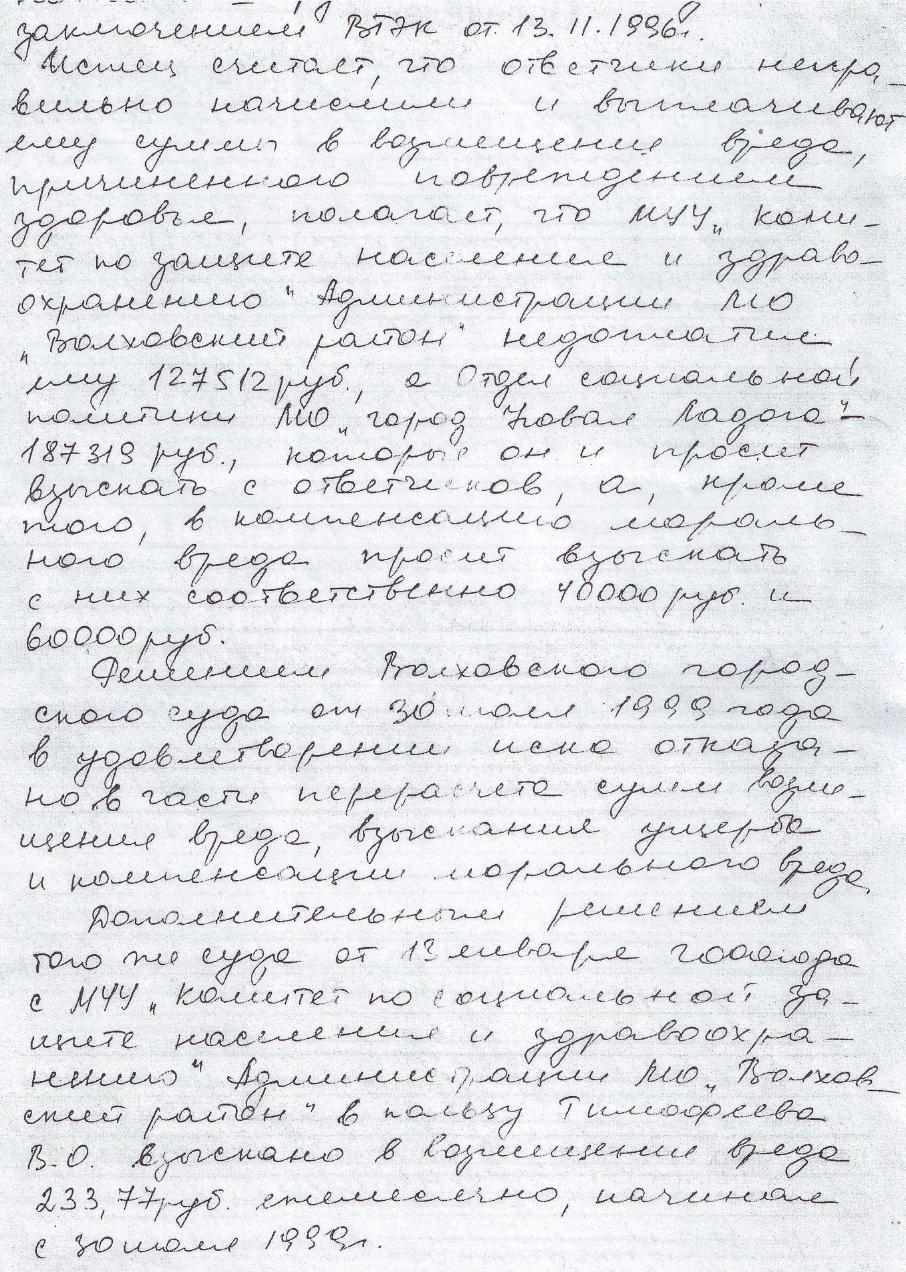 заключением ВТЭК от 13.11.1996г.
Истец считает, что ответчики непра-
вильно начислили и выплачивают
ему суммы в возмещение вреда,
причиненного повреждением
здоровья, полагает, что МУУ „коми-
тет по защите населения и здраво-
охранению" Администрации МО
„Волховский район" недоплатил
ему 127512 руб., а Отдел социальной
политики МО „город Новая Ладога"-
187319 руб., которые он и просит
взыскать с ответчиков, а, кроме
того, в компенсацию мораль-
ного вреда просит взыскать
с них соответственно 40000 руб. и
60000 руб.
Решением Волховского город-
ского суда от 30 июля 1999 года
в удовлетворении иска отказа-
но в части перерасчета сумм возме-
щения вреда, взыскания ущерба
и компенсации морального вреда.
Дополнительным решением
того же суда от 13 января 2000года
с МУУ „Комитет по социальной за-
щите населения и здравоохра-
нению" Администрации МО „Волхов-
ский район" в пользу Тимофеева
В.О. взыскано в возмещение вреда
233,77 руб. ежемесячно, начиная
с 30 июля 1999г.